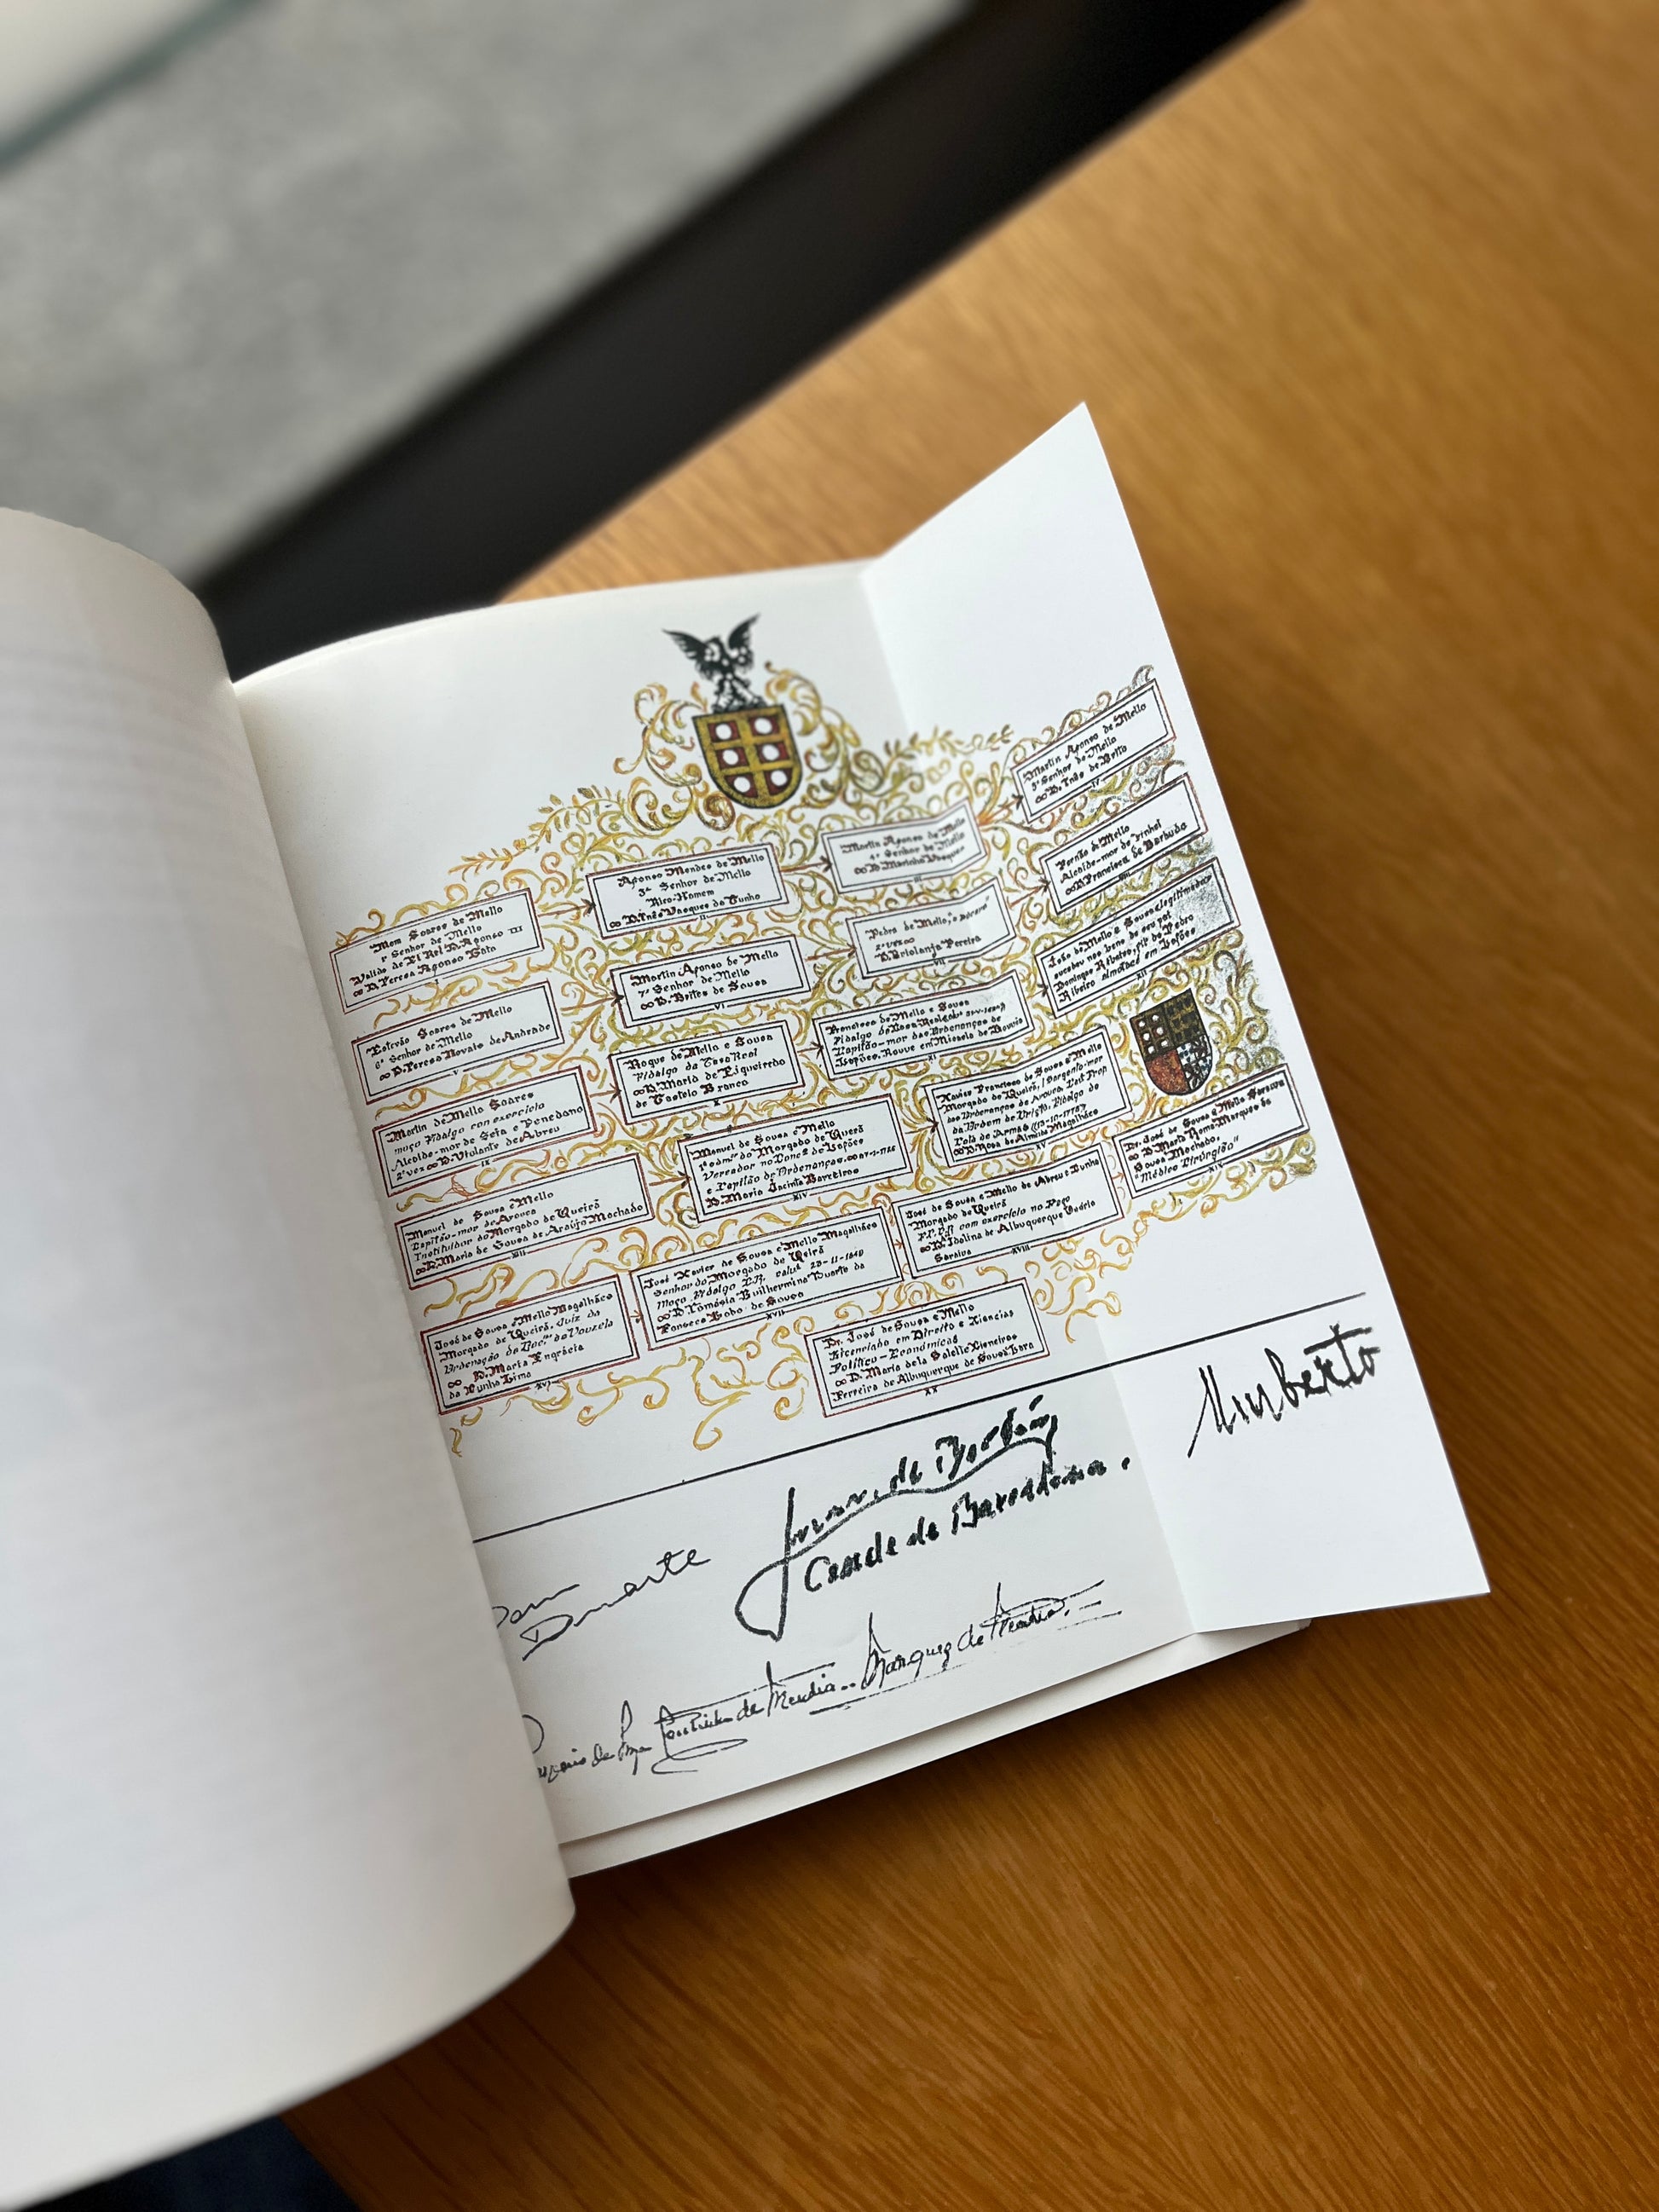 Mem Soares de Mello
1º Senhor de Mello
Valido de El Rei D. Afonso III
∞ D. Teresa Afonso Gata
Afonso Mendes de Mello
2º Senhor de Mello
Rico-Homem
∞ D. Inês Vasques da Cunha
II
Martin Afonso de Mello
∞ D. Marinha Vasques
III
Martin Afonso de Mello
Senhor de Mello
∞ D. Inês de Brito
IV
Estevão Soares de Mello
6º Senhor de Mello
∞ D. Teresa Novais de Andrade
V
Martin Afonso de Mello
7º Senhor de Mello
∞ D. Brites de Sousa
VI
Pedro de Mello,
2ª vez ∞
D. Briolanja Pereira
VII
Fernão de Mello
Alcaide-mor de Pinhel
∞ D. Francisca de Barbuda
VIII
Martin de Mello Soares
moço Fidalgo com exercício
Alcaide-mor de Seia e Penedono
2ª vez ∞ D. Violante de Abreu
IX
Roque de Mello e Sousa
Fidalgo da Casa Real
∞ D. Maria de Figueiredo
de Castelo Branco
X
Francisco de Mello e Sousa
Fidalgo da Casa Real
Capitão-mor das Ordenanças de
Lafões.
XI
João de Mello e Sousa
sucedeu nos bens de seu pai
Ribeiro
XII
Manuel de Sousa e Mello
Capitão-mor de Arouca
Instituidor do Morgado de Queirã
∞ D. Maria de Sousa de Araújo Machado
XIII
Manuel de Sousa e Mello
1º admor do Morgado de Queirã
Vereador no Conc.º de Lafões
e Capitão de Ordenanças.
D. Maria Jacinta Barreiros
XIV
Xavier Francisco de Sousa e Mello
Morgado de Queirã,
das Ordenanças de Arouca,
da Ordem de Cristo, Fidalgo de
Cota de Armas
∞ D. Rosa de Almeida Magalhães
XV
José de Sousa e Mello Magalhães
Morgado de Queirã, Juiz da
Ordenação do
∞ D. Maria Engrácia
da Cunha Lima
XVI
José Xavier de Sousa e Mello Magalhães
Senhor do Morgado de Queirã
Moço Fidalgo C.R. 23-11-1840
∞ D. Tomásia Guilhermina Duarte da
Fonseca Lobo de Sousa
XVII
José de Sousa e Mello de Abreu e Cunha
Morgado de Queirã
F.C.R com exercício no Paço
∞ D. Idalina de Albuquerque Osório
Saraiva
XVIII
Dr. José de Sousa e Mello Saraiva
∞ D. Maria Roma Marques da
Sousa Machado.
"Médico Cirurgião"
XIX
Dr. José de Sousa e Mello
Licenciado em Direito e Ciencias
Politico-Económicas
∞ D. Maria dela Salette Cisneiros
Ferreira de Albuquerque de Sousa Lara
XX
Dom
Duarte
Juan de Borbón
Conde de Barcelona.
Umberto